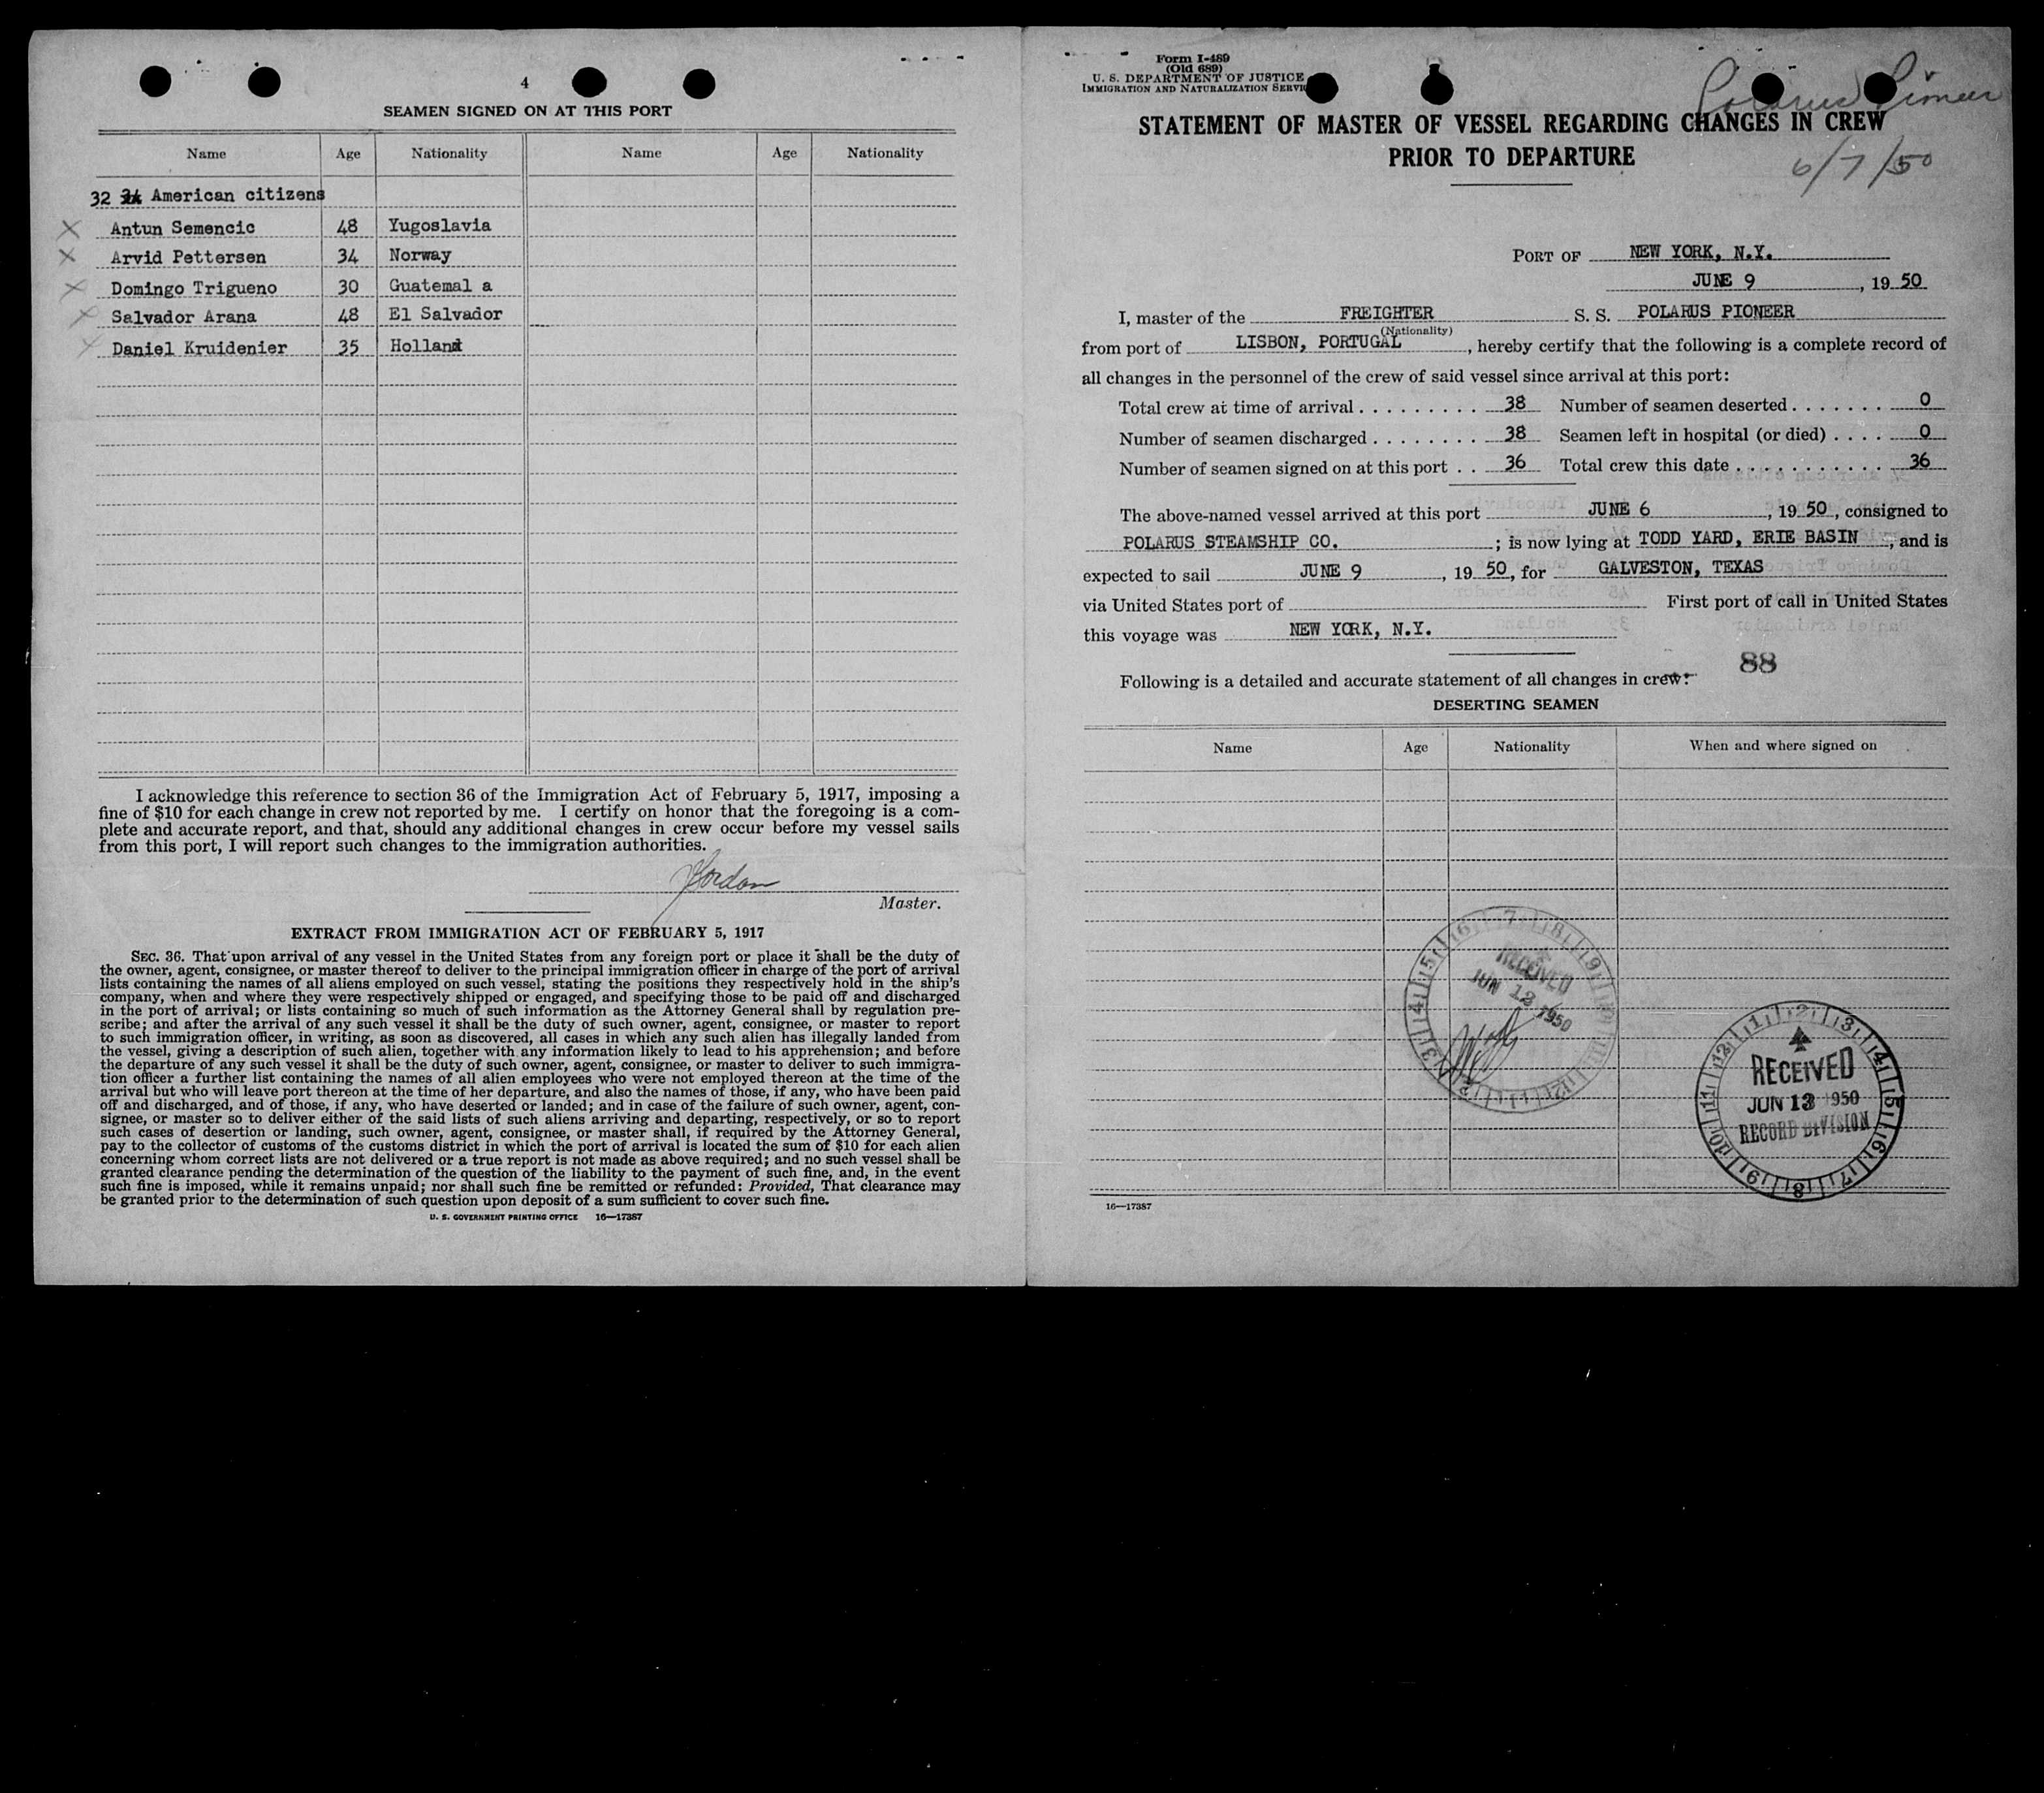 4
SEAMEN SIGNED ON AT THIS PORT
Name Age Nationality Name Age Nationality
32 American citizens
Antun Semencic 48 Yugoslavia
Arvid Pettersen 34 Norway
Domingo Trigueno 30 Guatemal a
Salvador Arana 48 El Salvador
Daniel Kruidenier 35 Holland
I acknowledge this reference to section 36 of the Immigration Act of February 5, 1917, imposing a
fine of $10 for each change in crew not reported by me. I certify on honor that the foregoing is a com-
plete and accurate report, and that, should any additional changes in crew occur before my vessel sails
from this port, I will report such changes to the immigration authorities.
Jordan
Master.
EXTRACT FROM IMMIGRATION ACT OF FEBRUARY 5, 1917
SEC. 36. That upon arrival of any vessel in the United States from any foreign port or place it shall be the duty of
the owner, agent, consignee, or master thereof to deliver to the principal immigration officer in charge of the port of arrival
lists containing the names of all aliens employed on such vessel, stating the positions they respectively hold in the ship's
company, when and where they were respectively shipped or engaged, and specifying those to be paid off and discharged
in the port of arrival; or lists containing so much of such information as the Attorney General shall by regulation pre-
scribe; and after the arrival of any such vessel it shall be the duty of such owner, agent, consignee, or master to report
to such immigration officer, in writing, as soon as discovered, all cases in which any such alien has illegally landed from
the vessel, giving a description of such alien, together with any information likely to lead to his apprehension; and before
the departure of any such vessel it shall be the duty of such owner, agent, consignee, or master to deliver to such immigra-
tion officer a further list containing the names of all alien employees who were not employed thereon at the time of the
arrival but who will leave port thereon at the time of her departure, and also the names of those, if any, who have been paid
off and discharged, and of those, if any, who have deserted or landed; and in case of the failure of such owner, agent, con-
signee, or master so to deliver either of the said lists of such aliens arriving and departing, respectively, or so to report
such cases of desertion or landing, such owner, agent, consignee, or master shall, if required by the Attorney General,
pay to the collector of customs of the customs district in which the port of arrival is located the sum of $10 for each alien
concerning whom correct lists are not delivered or a true report is not made as above required; and no such vessel shall be
granted clearance pending the determination of the question of the liability to the payment of such fine, and, in the event
such fine is imposed, while it remains unpaid; nor shall such fine be remitted or refunded: Provided, That clearance may
be granted prior to the determination of such question upon deposit of a sum sufficient to cover such fine.
U. S. GOVERNMENT PRINTING OFFICE 16—17387
Form I-489
(Old 689)
U. S. DEPARTMENT OF JUSTICE
IMMIGRATION AND NATURALIZATION SERVI
Polarus Pioneer
STATEMENT OF MASTER OF VESSEL REGARDING CHANGES IN CREW
PRIOR TO DEPARTURE
6/7/50
PORT OF NEW YORK, N.Y.
JUNE 9, 19 50
I, master of the FREIGHTER S. S. POLARUS PIONEER
(Nationality)
from port of LISBON, PORTUGAL, hereby certify that the following is a complete record of
all changes in the personnel of the crew of said vessel since arrival at this port:
Total crew at time of arrival . . . . . . . . . 38 Number of seamen deserted . . . . . . . 0
Number of seamen discharged . . . . . . . . 38 Seamen left in hospital (or died) . . . . 0
Number of seamen signed on at this port . . 36 Total crew this date . . . . . . . . . . . 36
The above-named vessel arrived at this port JUNE 6, 19 50, consigned to
POLARUS STEAMSHIP CO.; is now lying at TODD YARD, ERIE BASIN, and is
expected to sail JUNE 9, 19 50, for GALVESTON, TEXAS
via United States port of First port of call in United States
this voyage was NEW YORK, N.Y.
88
Following is a detailed and accurate statement of all changes in crew:
DESERTING SEAMEN
Name Age Nationality When and where signed on
RECEIVED
JUN 12 1950
RECEIVED
JUN 13 1950
RECORD DIVISION
16—17387